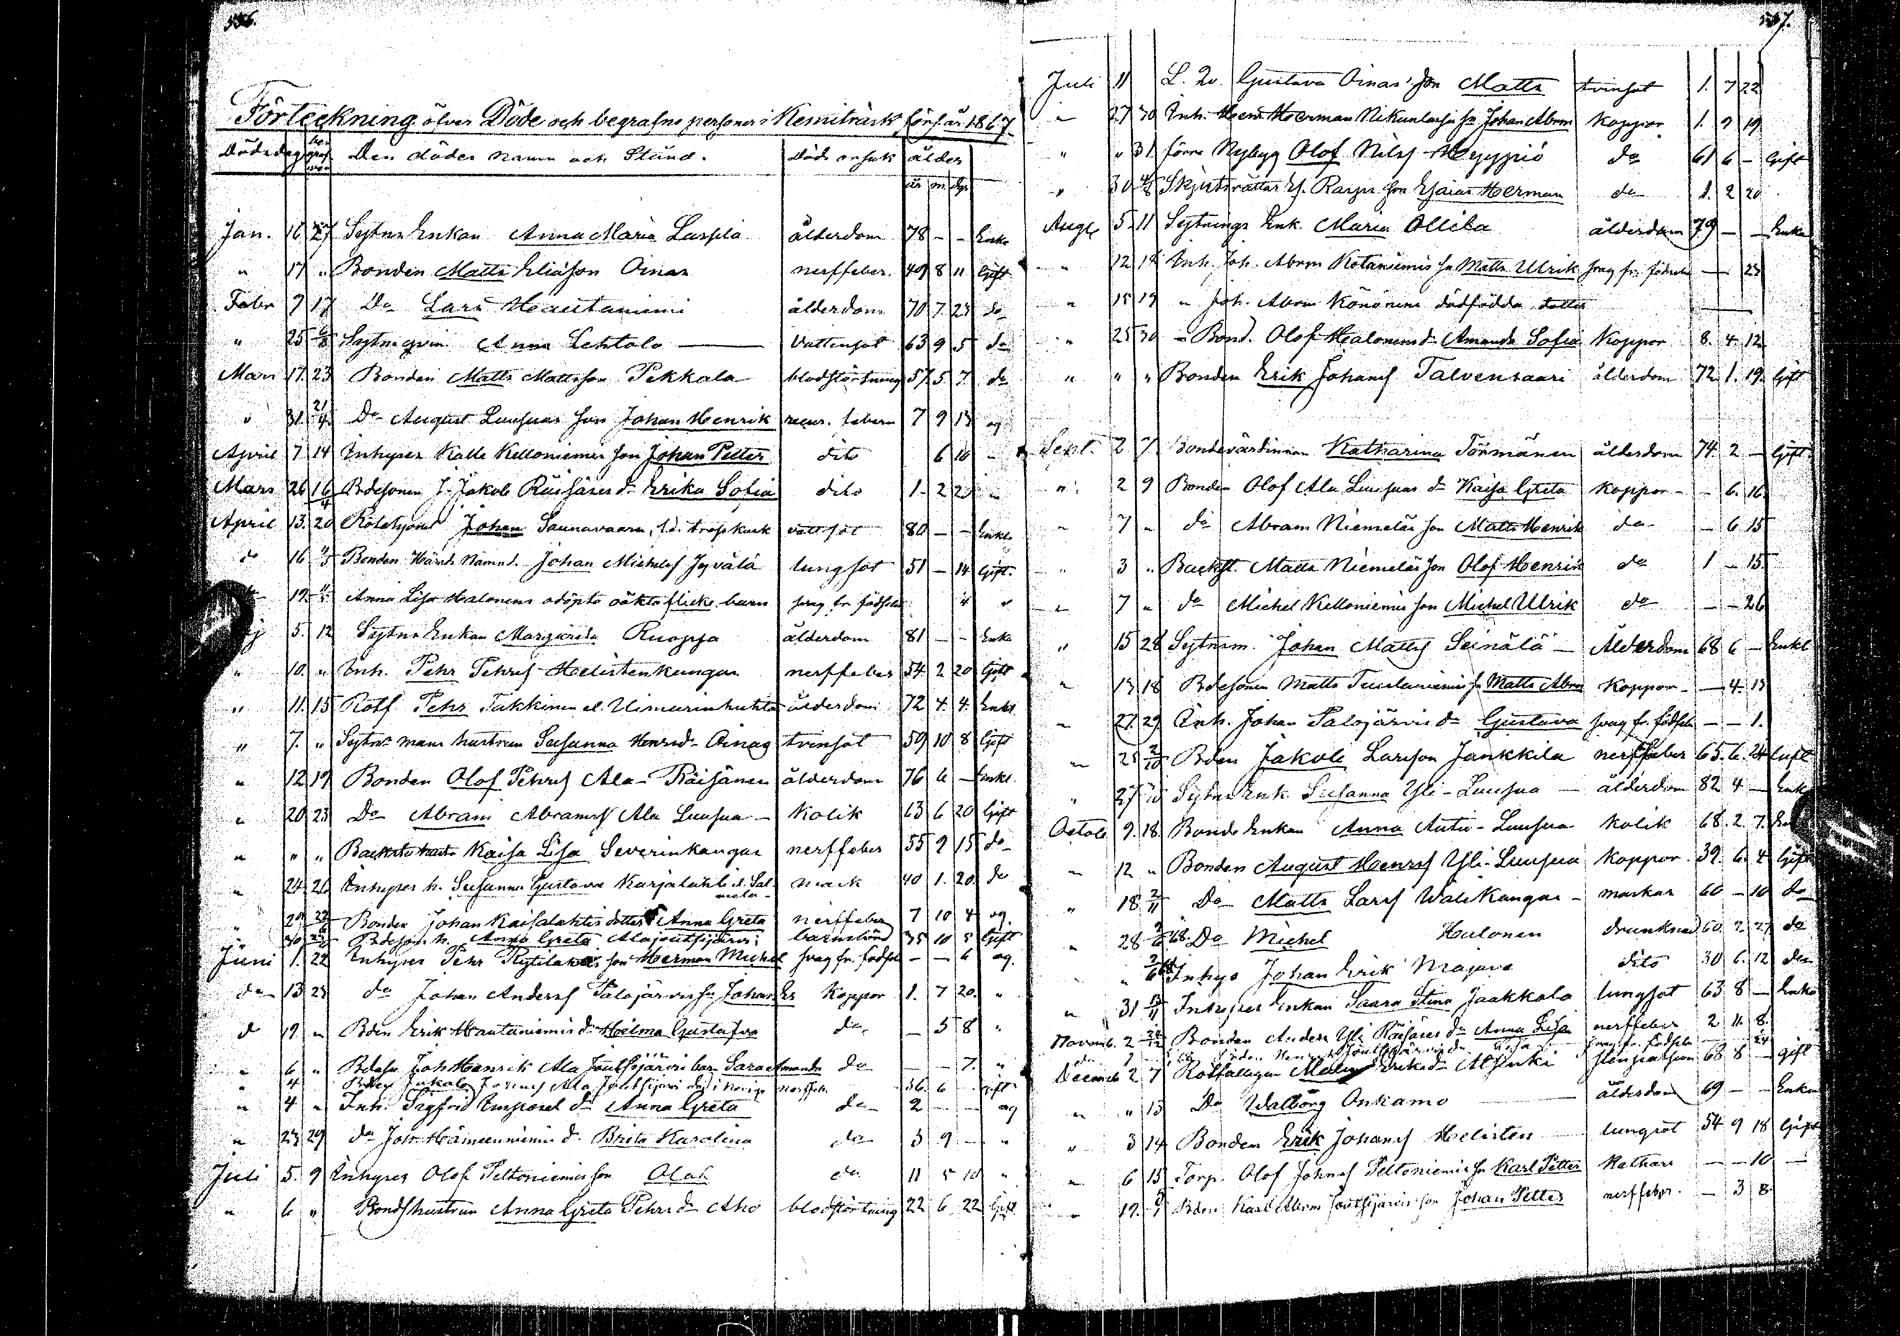 556.
Förteckning öfver Döde och begrafne personer i Kemiträsk för år 1867.
Dödsdag Den dödes namn och Stånd. Döds orsak ålder
år m. dgr
Jan. 16 27 Sytn. Enkan Anna Maria Laspela ålderdom 78 - - Enka
" 17 " Bonden Matts Eliasson Oinas nerffeber. 49 8 11 Gift
Febr 7 17 Do Lars Hautaniemi ålderdom 70 7 23 do
" 25 Anna Lehtola Vattensot 63 9 5 do
Mars 17 23 Bonden Matts Mattsson Pekkala blodstörtning 57 5 7 do
" 31 21/4 Do August Luusuas son Johan Henrik recur. febern 7 9 13 og
April 7 14 Inhyses Kalle Kelloniemis son Johan Petter dito 6 10 -
Mars 26 16/4 Bdesonen J. Jakob Räisänes dr Erika Sofia dito 1 - 2 2
April 13. 20 Johan Saunavaara, vattsot 80 - - Enkl
do 16 Bonden Härads Nämnd. Johan Michelss Jyvälä lungsot 51 - 14 Gift.
19 Anna Lisa Halonens odöpta oäkta flicko barn svag fr. födseln 4 "
5. 12 Sytn. Enkan Margareta Ruoppa ålderdom 81 - - Enka
" 10. " Inh. Pehr Pehrss Helistenkangas nerffeber 54 2 20 Gift
" 11. 15 Rotf Pehr Takkinen el. ålderdom 72 4. 4. Enkl
" 7. " Sytn. mans hustrun Susanna Henrsd. Oinas tvinsot 59 10 8 Gift
" 12 19 Bonden Olof Pehrss Ala-Räisänen ålderdom 76 6 - Enkl.
" 20 23 Do Abram Abramss Ala Luusua kolik 63 6 20 Gift
" " " Kaisa Lisa Severinkangas nerffeber 55 9 15 do
" 24 26 Inhyses h. Susanna Gustava Karjalahti 40 1. 20. do
" Bonden Johan Kaisalahtis dotter Anna Greta nerffeber 7 10 4 og.
" 30 h. Anna Greta Alajoutsijärvi barnsbörd 35 10 5 Gift
Juni 1. 22 Inhyses Pehr son Herman Michel svag fr. födsel - - 6 og.
do 13 23 do Johan Anderss Palojärvis sn Johan Er koppor 1. 7 20. "
d 19 " Bden Erik Hautaniemis dr Hilma Gustafva do - 5 8 "
" 6 " Bdeson Joh Henrik Ala Joutsijärvis barn Sara Amanda do - - 7. "
" 4 Jakob Johanss Ala Joutsijärvi död i Norige nerffeb. 36. 6 gift
" 4 " Inh. Sigfrid dr Anna Greta do 2 - - og
" 23 29 do Joh. Hämeenniemis dr Brita Karolina do 3 9 - "
Juli 5. 9 Inhyses Olof Peltoniemis son Olof do. 11 5 10 "
" 6 " Bondshustrun Anna Greta Pehrsdr Aho blodstörtning 22 6 22 Gift
557.
Juli 11 Gustava Oinas' son Matts tvinsot 1. 7 22
" 27 30 Inh. Henr. Herman Nikunlassis sn Johan Abrm koppor 1. 9 19.
" " 31 förre Nybyg Olof Nilss Hyypiö do 61 6 - Gift
" 30 4/8 Skjutsrättar Son Esaias Herman do 1. 2 20
Aug. 5. 11 Sytnings Enk. Maria Ollila ålderdom 79 - - Enka
" 12 18 Inh. Joh. Abrm Kotaniemis sn Matts Ulrik svag fr. födseln - 23
" 15 19 " Joh. Abrm Könönens dödfödda dotter
" 25 30 - Bond. Olof Halonens dr Amanda Sofia koppor 8. 4 12
" " " Bonden Erik Johanss Talvensaari ålderdom 72 1. 19. Gift
Sept. 2 7. Bondevärdinnan Katharina Törmänen ålderdom 74 2 - Gift.
" 2 9 Bonden Olof Ala Luusuas dr Kaisa Greta koppor - - 6. 16.
" 7 " do Abram Niemeläs son Matts Henrik do - 6 15
" 3 " Backst. Matts Niemeläs son Olof Henrik do 1 - 15.
" 7 " do Michel Kelloniemis son Michel Ulrik do - - 26
" 15 28 Sytnm. Johan Matts Seinälä - Ålderdom 68 6 - Enkl
" 13 18 Bdesonen Matts Tuulaniemis sn Matts Abra koppor - - 4 13
" 27. 29 Inh. Johan Palojärvis dr Gustava svag fr. födseln - - 1.
" 25 2/10 Bden Jakob Larsson Jankkila nerffeber 65. 6. 24 Gift
" 27 Sytn. Enk. Susanna Yli-Luusua - ålderdom 82 4 - Enk
Octob. 9. 18. Bonde Enkan Anna Autio-Luusua kolik 68. 2 7. Enk
" 12 " Bonden August Henrss Yli-Luusua koppor 39. 6. 4 Gift
" 18 2/11 Do Matts Larss - maskar 60 - 10 do
" 28 68 Do Michel Halonen drunknad 60. 2 27 do
" " Inhys Johan Erik Majava dito 30 6. 12 do
" 31 Inhyses Enkan Saara Stina Jaakkola lungsot 63 8 - Enka
Novemb. 2 Bonden Anders Yli Räisänes dr Anna Lisa nerffeber 2 11. 8.
svag fr. födseln 24
Decemb 2 7 Rotfattigan Malin Eriksdr 68 8 - gift
" " 15 Do Walborg Onkamo ålderdom 69 - - Enka
" 3 14 Bonden Erik Johanss Helisten lungsot 54 9 18 Gift
" 6 15 Torp. Olof Johnss Peltoniemis sn Karl Petter Katharr - - 10 -
" 19. Bden Karl Abrm Joutsijärvis son Johan Petter nerffeber. - 3 8